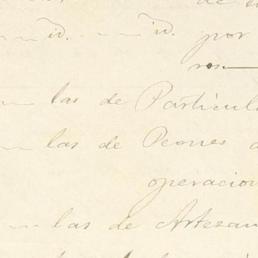 id. id. por
ros.
las de Particul
las de Peones
operacion
las de Artezan